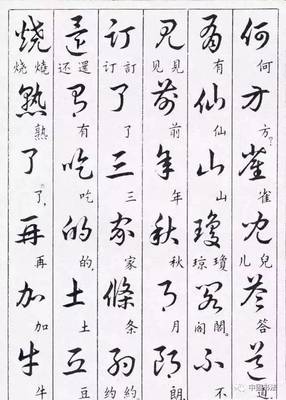 何方雀兒答道
何方？雀兒儿答道
有仙山瓊閣不
有仙山瓊琼閣阁。不
見前年秋月朗
見见前年秋月朗
訂了三家條約
訂订了三家条約约
還有吃的土豆
還还有吃的，土豆
燒熟了再加牛
燒烧熟了，再加牛
中国书法